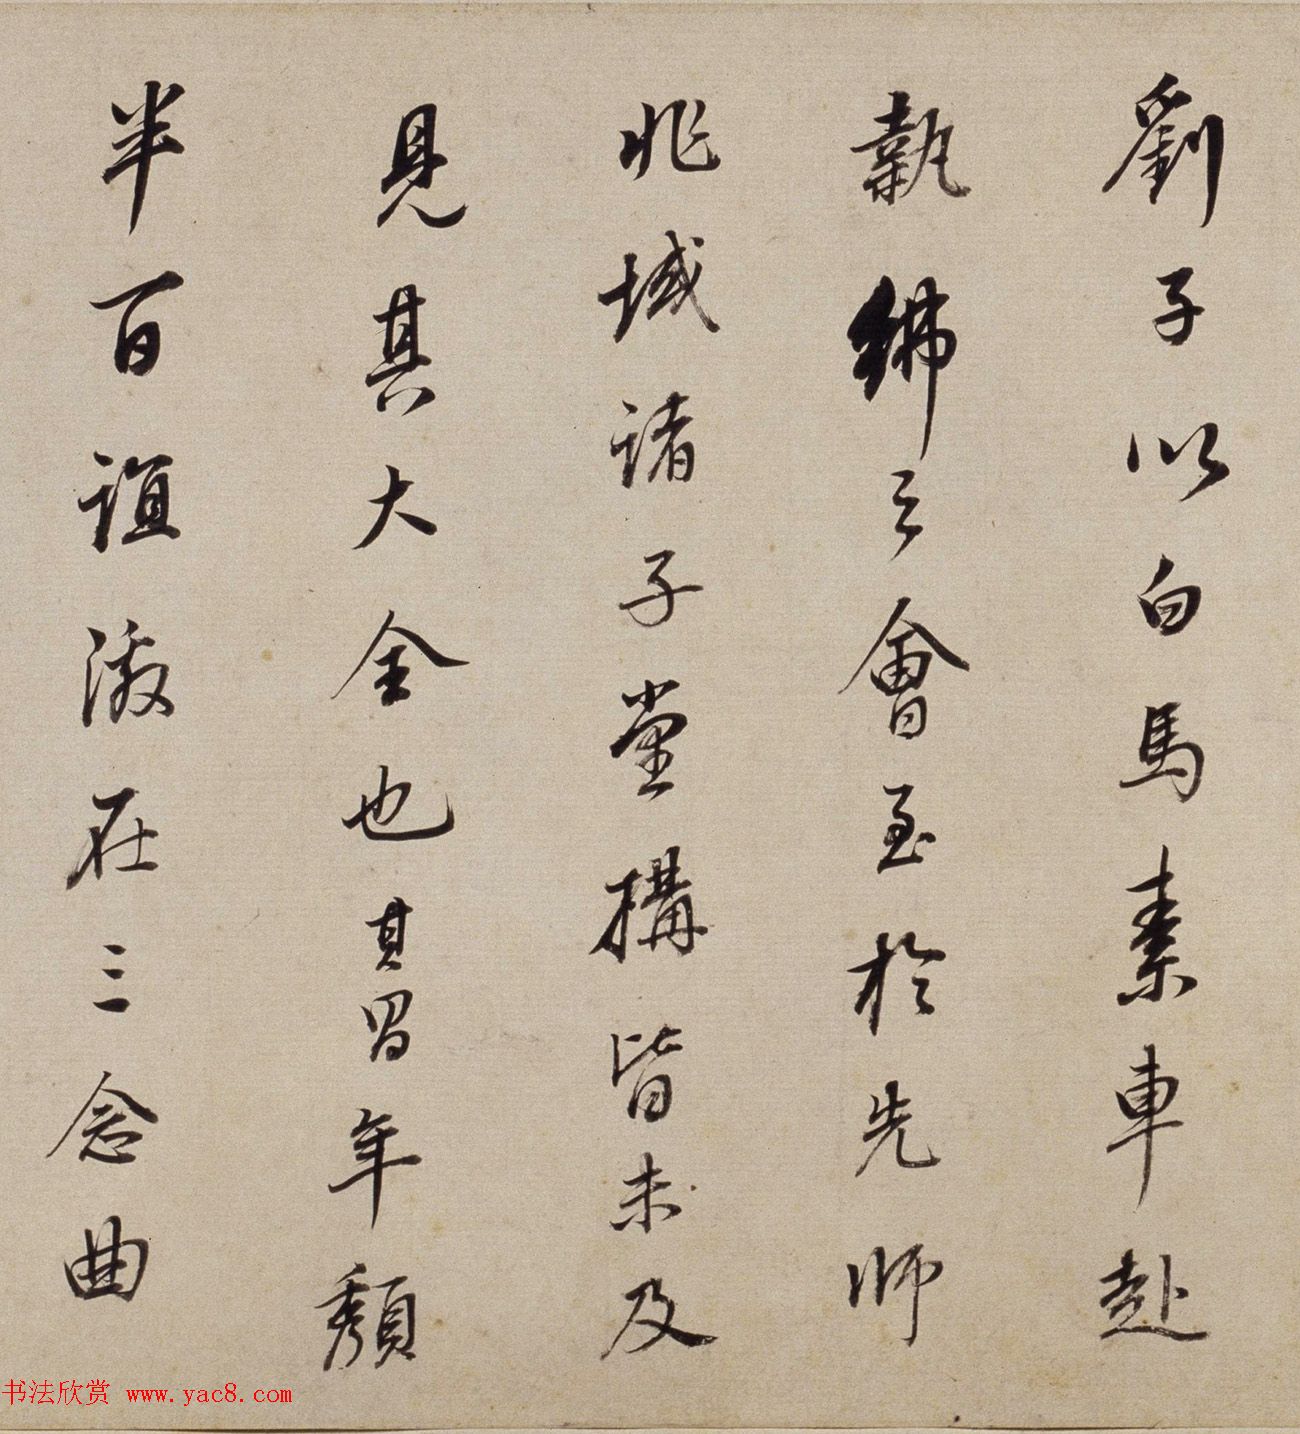 劉子以白馬素車赴
執紼之會至於先師
兆域諸子堂構皆未及
見其大全也其昌年頹
半百誼激在三念曲
书法欣赏 www.yac8.com